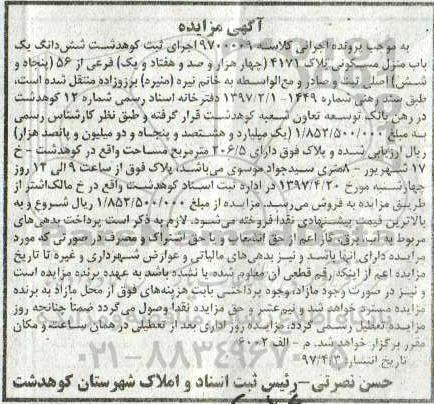 آگهی مزایده
به موجب پرونده اجرائی کلاسه ۹۷۰۰۰۰۹ اجرای ثبت کوهدشت شش‌دانگ یک
باب منزل مسکونی پلاک ۴۱۷۱ (چهار هزار و صد و هفتاد و یک) فرعی از ۵۶ (پنجاه و
شش) اصلی ثبت و صادر و مع‌الواسطه به خانم نیره (منیره) برزوزاده منتقل شده است،
طبق سند رهنی شماره ۱۴۴۹-۱۳۹۷/۲/۱ دفترخانه اسناد رسمی شماره ۱۲ کوهدشت
در رهن بانک توسعه تعاون شعبه کوهدشت قرار گرفته و طبق نظر کارشناس رسمی
به مبلغ ۱/۸۵۲/۵۰۰/۰۰۰ (یک میلیارد و هشتصد و پنجاه و دو میلیون و پانصد هزار)
ریال ارزیابی شده و پلاک فوق دارای ۲۰۶/۵ مترمربع مساحت واقع در کوهدشت - خ
۱۷ شهریور - ۸متری سیدجواد موسوی می‌باشد، پلاک فوق از ساعت ۹ الی ۱۲ روز
چهارشنبه مورخ ۱۳۹۷/۴/۲۰ در اداره ثبت اسناد کوهدشت واقع در خ مالک‌اشتر از
طریق مزایده به فروش می‌رسد. مزایده از مبلغ ۱/۸۵۲/۵۰۰/۰۰۰ ریال شروع و به
بالاترین قیمت پیشنهادی نقدا فروخته می‌شود. لازم به ذکر است پرداخت بدهی‌های
مربوط به آب، برق، گاز اعم از حق انشعاب و یا حق اشتراک و مصرف در صورتی که مورد
مزایده دارای آنها باشد و نیز بدهی‌های مالیاتی و عوارض شهرداری و غیره تا تاریخ
مزایده اعم از اینکه رقم قطعی آن معلوم شده یا نشده باشد به عهده برنده مزایده است
و نیز در صورت وجود مازاد، وجوه پرداختی بابت هزینه‌های فوق از محل مازاد به برنده
مزایده مسترد خواهد شد و نیم‌عشر و حق مزایده نقدا وصول می‌گردد ضمنا چنانچه روز
مزایده تعطیل رسمی گردد، مزایده روز اداری بعد از تعطیلی در همان ساعت و مکان
مقرر برگزار خواهد شد. م - الف ۶۰۰۲
تاریخ انتشار: ۹۷/۴/۳
حسن نصرتی - رئیس ثبت اسناد و املاک شهرستان کوهدشت
۰۲۱-۸۸۳۴۹۶۷۰